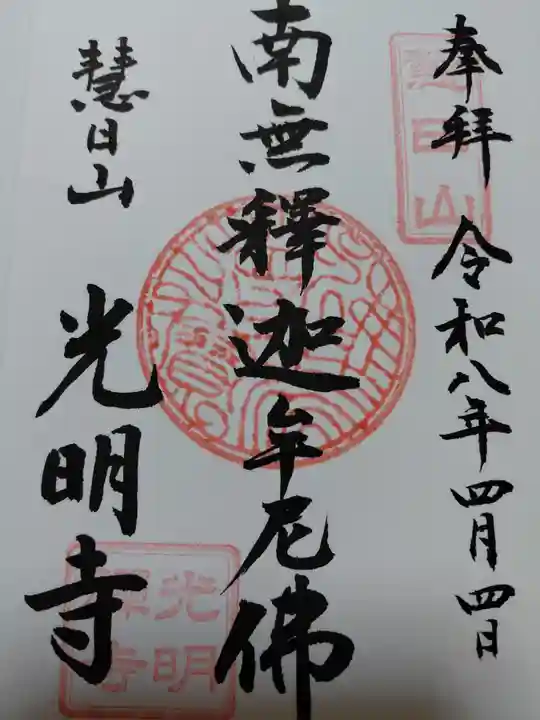 奉拜 令和八年四月四日
慧日山
南無釋迦牟尼佛
慧日山 光明寺
光明
禪寺